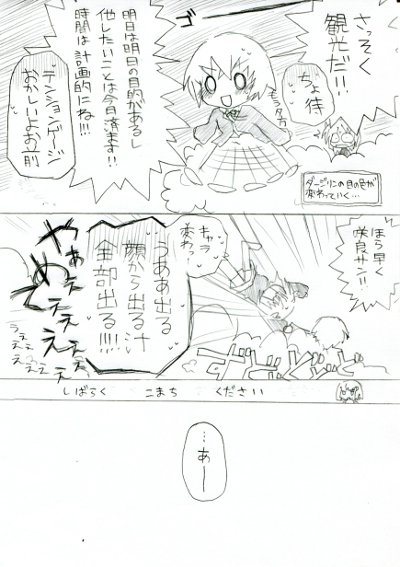 さっそく
観光だ!!
ゴ
ちょ待
モラタカ
明日は明日の目的があるし
他したいことは今日済ます!!
時間は計画的にね!!!
テンションゲージ
おかしいよお前
ダージリンの目の色が
変わっていく…
ほら早く
咲良サン!!
キャラ
変わっ
うああ出る
顔から出る汁
全部出る!!!!
やぁ
めぇ
ええ
ええ
うぇぇ
ええ
ええ
しばらく こまち ください
…あー